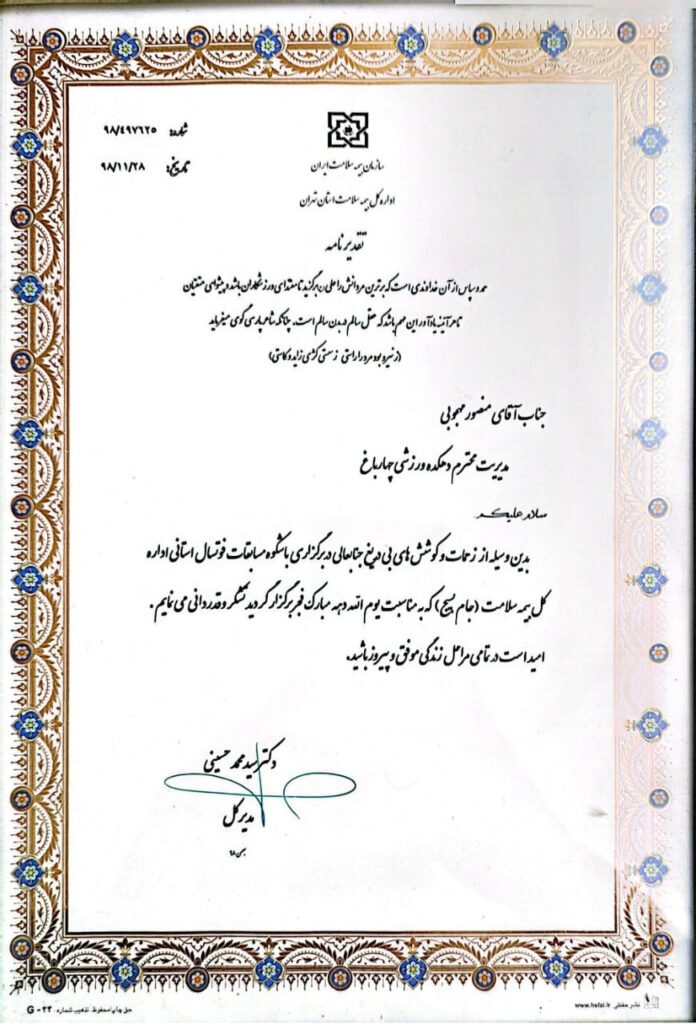 شماره: ۹۸/۴۹۷۶۲۵
تاریخ: ۹۸/۱۱/۲۸
سازمان بیمه سلامت ایران
اداره کل بیمه سلامت استان تهران
تقدیر نامه
حمد و سپاس از آن خداوندی است که برترین مردانش را علی (ن) برگزید تا مقتدای ورزشکاران باشد و پیشوای متقیان
تا هر آئینه یادآور این مهم باشد که عقل سالم در بدن سالم است. چنانکه شاعر پارسی گوی میفرماید
(ز نیرو بود مرد را راستی ز سستی کژی زاید و کاستی)
جناب آقای منصور مهجوبی
مدیریت محترم دهکده ورزشی چهارباغ
سلام علیکم
بدین وسیله از زحمات و کوشش های بی دریغ جنابعالی در برگزاری باشکوه مسابقات فوتسال استانی اداره
کل بیمه سلامت (جام بسیج) که به مناسبت یوم الله دهه مبارک فجر برگزار گردید تشکر و قدردانی می نمایم.
امید است در تمامی مراحل زندگی موفق و پیروز باشید.
دکتر سید محمد حسینی
مدیر کل
بهمن ۹۸
نشر حفظی www.hefzi.ir
حق چاپ محفوظ. تذهیب شماره: G - ۲۳